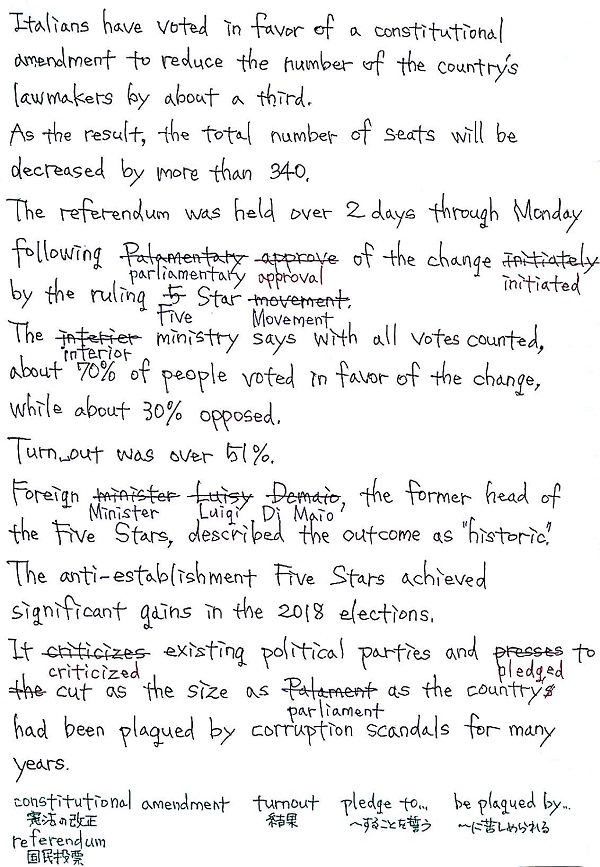 Italians have voted in favor of a constitutional
amendment to reduce the number of the country's
lawmakers by about a third.
As the result, the total number of seats will be
decreased by more than 340.
The referendum was held over 2 days through Monday
following Palamentary approve of the change initiately
parliamentary approval initiated
by the ruling 5 Star movement.
Five Movement
The interier ministry says with all votes counted,
interior
about 70% of people voted in favor of the change,
while about 30% opposed.
Turn out was over 51%.
Foreign minister Luisy Demaio, the former head of
Minister Luigi Di Maio
the Five Stars, described the outcome as "historic."
The anti-establishment Five Stars achieved
significant gains in the 2018 elections.
It criticizes existing political parties and presses to
criticized pledged
the cut as the size as Palament as the countrys
parliament
had been plagued by corruption scandals for many
years.
constitutional amendment turnout pledge to... be plagued by...
憲法の改正 結果 〜することを誓う 〜に苦しめられる
referendum
国民投票